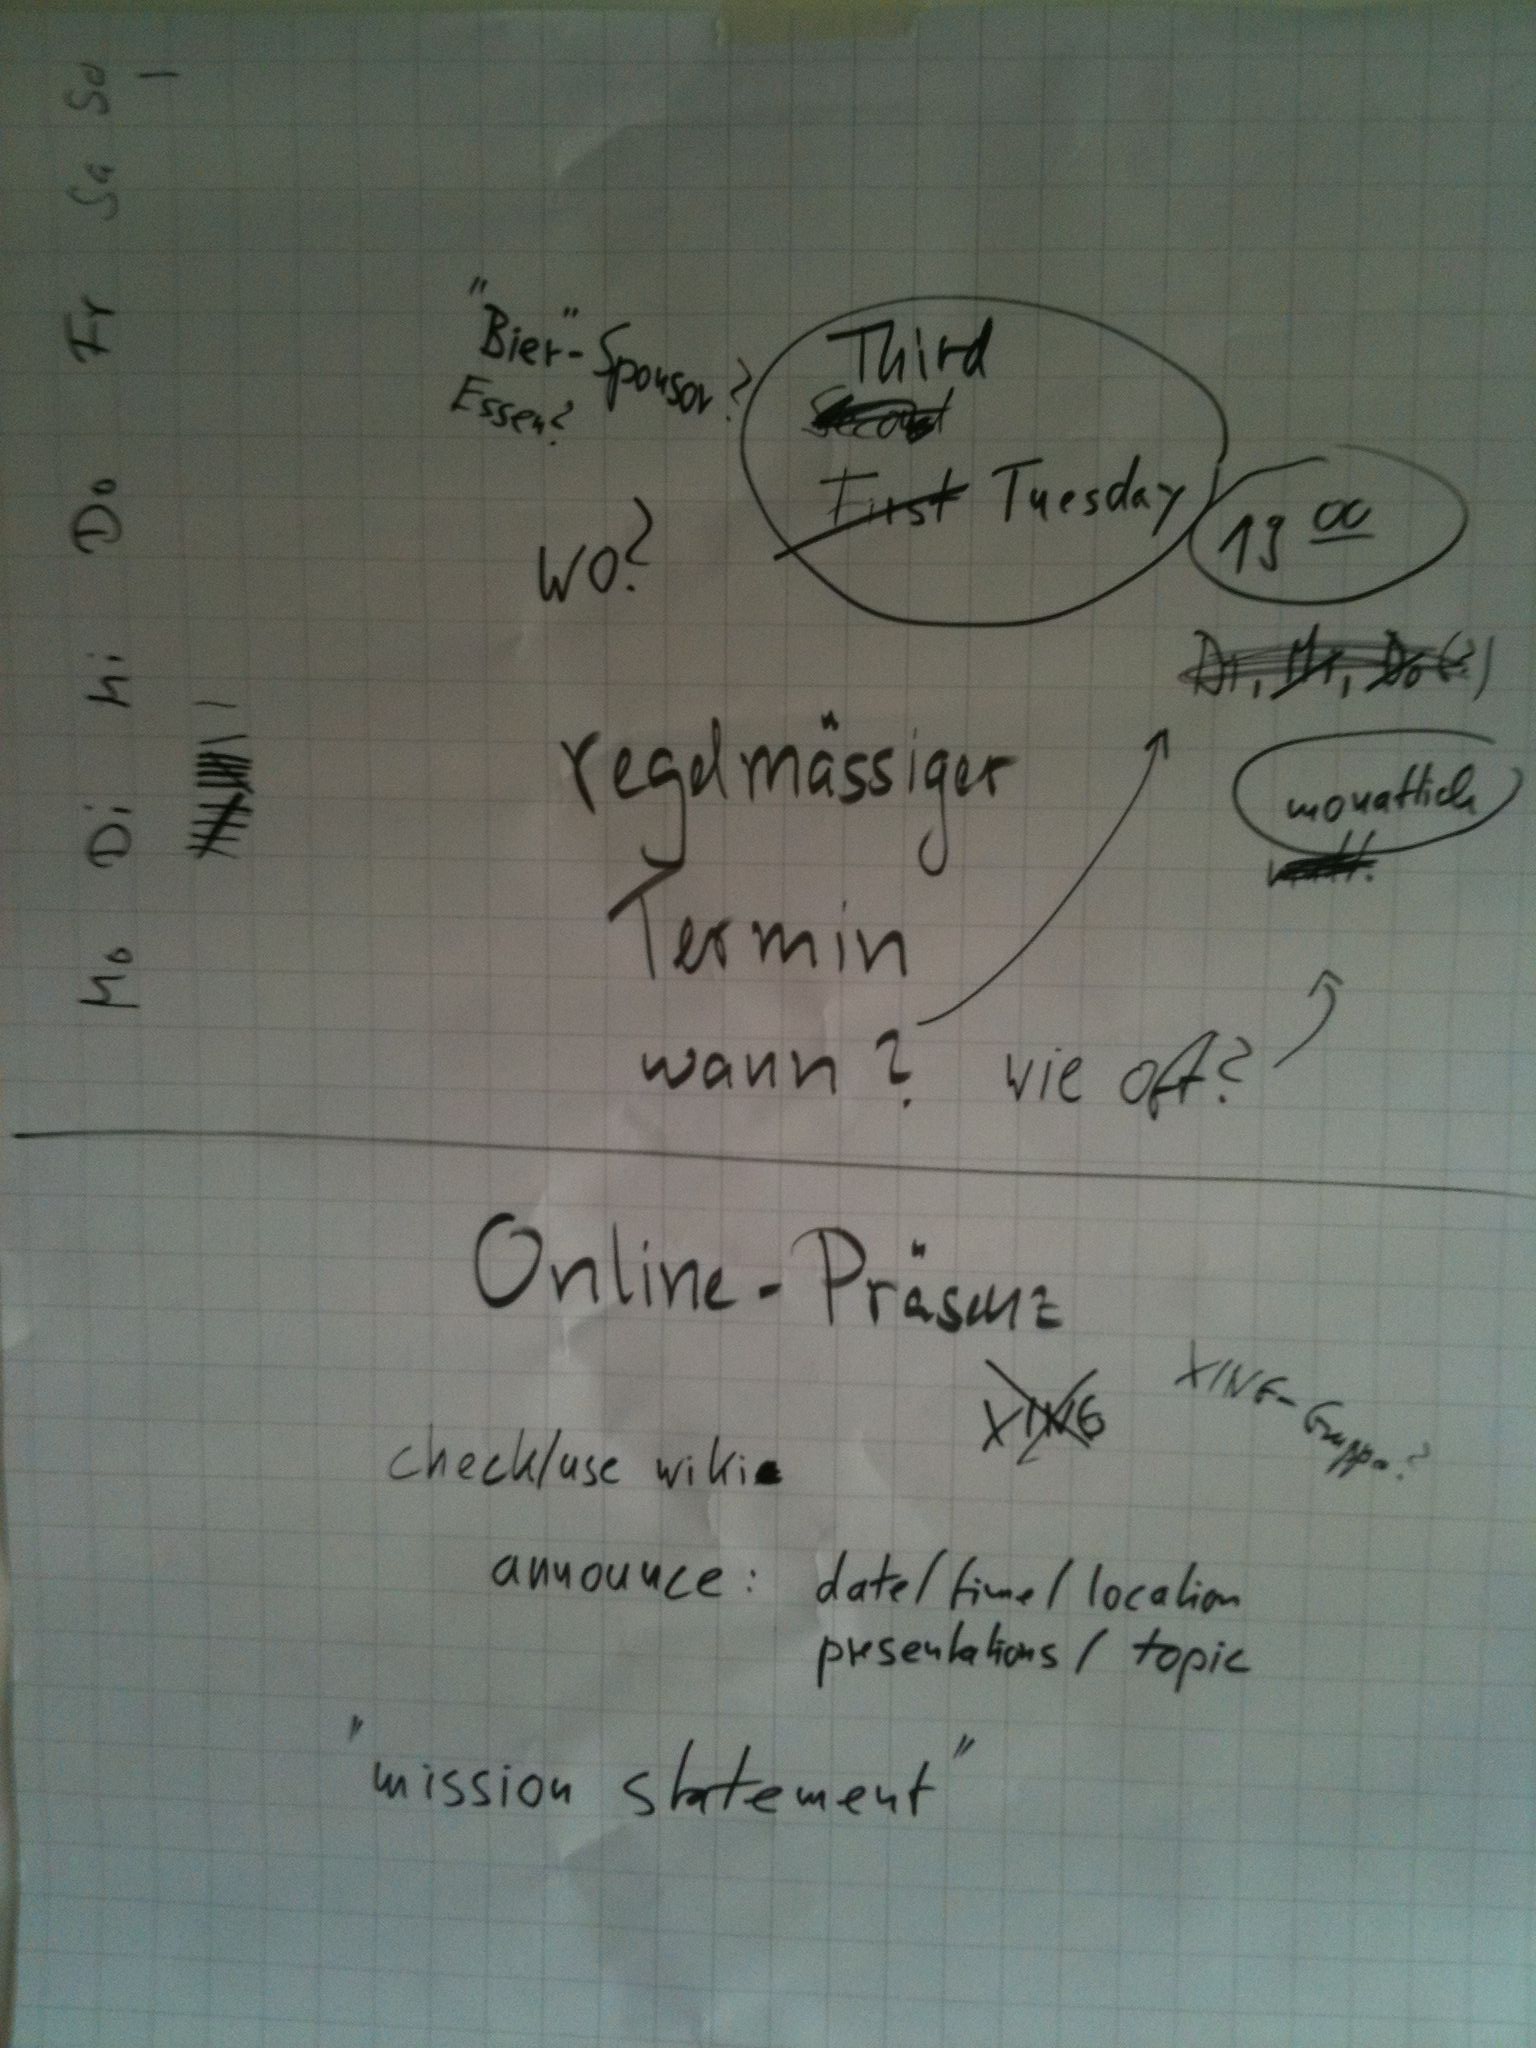 Mo Di Mi Do Fr Sa So
"Bier"-Sponsor?
Essen?
Third
Second
First Tuesday
19 00
wo?
Di, Mi, Do (?)
regelmässiger
Termin
monatlich
wann? wie oft?
Online-Präsenz
XING
XING-Gruppe?
check/use wiki
announce: date/time/location
presentations/topic
"mission statement"